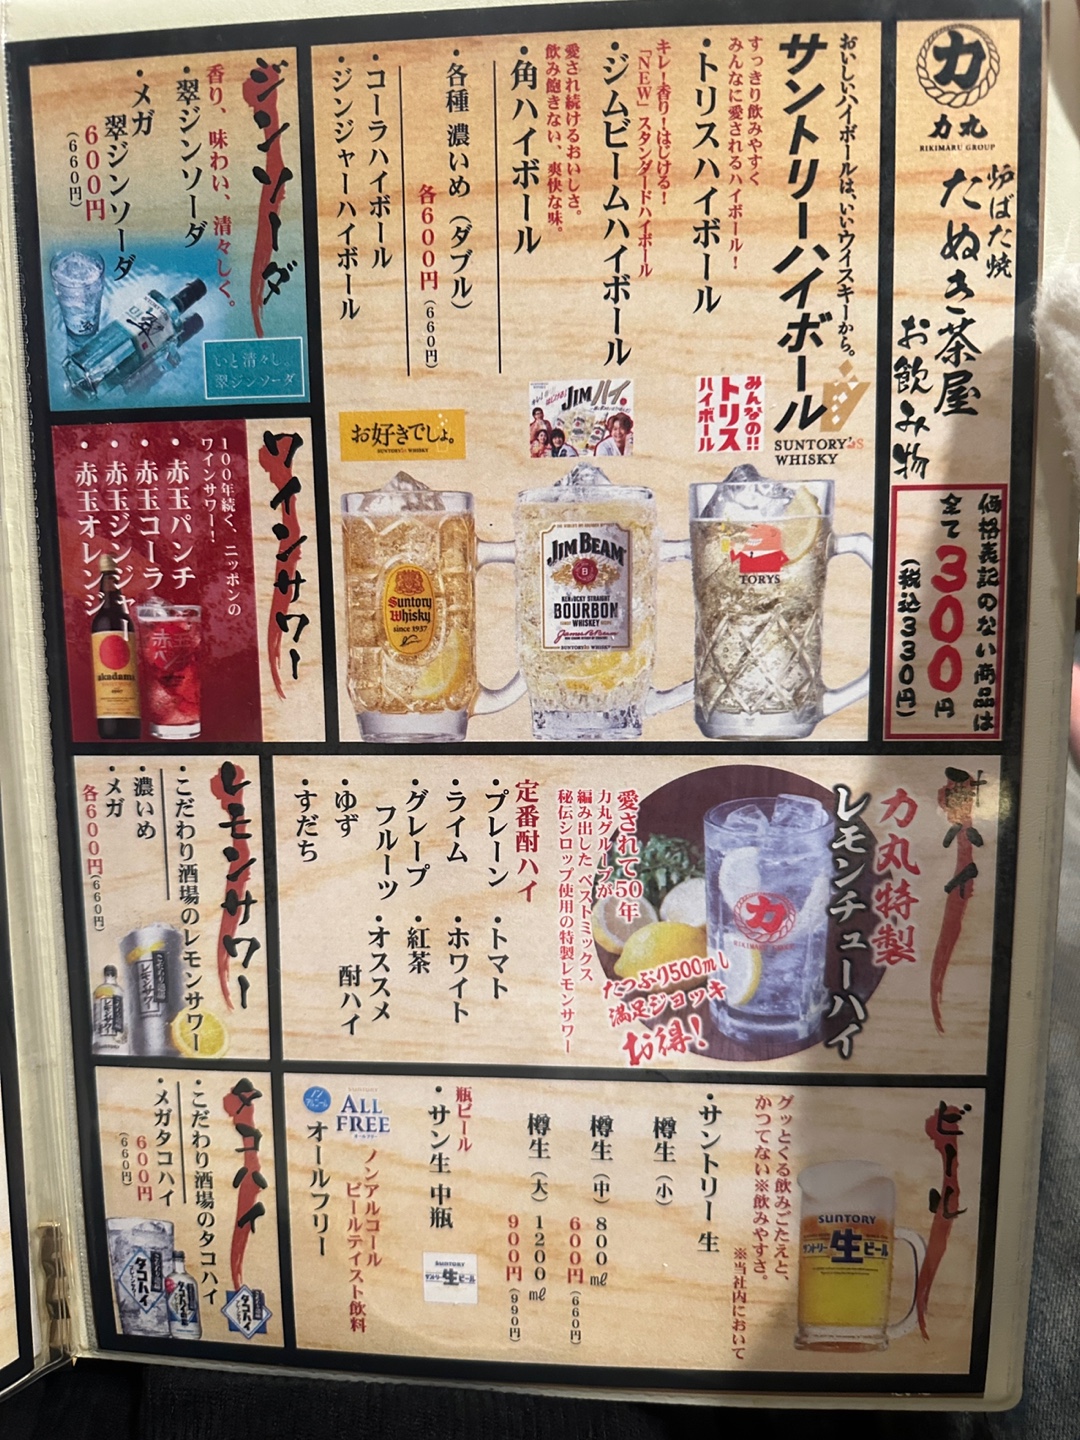 力
力丸
RIKIMARU GROUP
炉ばた焼
たぬき茶屋
お飲み物
価格表記のない商品は
全て300円
(税込330円)
おいしいハイボールは、いいウイスキーから。
サントリーハイボール
SUNTORY's
WHISKY
すっきり飲みやすく
みんなに愛されるハイボール！
・トリスハイボール
キレ！香り！はじける！
「NEW」スタンダードハイボール
・ジムビームハイボール
愛され続けるおいしさ。
飲み飽きない、爽快な味。
・角ハイボール
・各種 濃いめ（ダブル）
各600円(660円)
・コーラハイボール
・ジンジャーハイボール
みんなの!!
トリス
ハイボール
JIMハイ。
お好きでしょ。
SUNTORY WHISKY
TORYS
JIM BEAM
KENTUCKY STRAIGHT
BOURBON
WHISKEY
Suntory
Whisky
since 1937
ジンソーダ
香り、味わい、清々しく。
・翠ジンソーダ
・メガ
翠ジンソーダ
600円
(660円)
翠
いと清々し。
翠ジンソーダ
ワインサワー
100年続く、ニッポンの
ワインサワー！
・赤玉パンチ
・赤玉コーラ
・赤玉ジンジャー
・赤玉オレンジ
akadama
赤玉
酎ハイ
力丸特製
レモンチューハイ
力
RIKIMARU GROUP
愛されて50年
力丸グループが
編み出したベストミックス
秘伝シロップ使用の特製レモンサワー
たっぷり500ml
満足ジョッキ
お得！
定番酎ハイ
・プレーン
・ライム
・グレープ
フルーツ
・ゆず
・すだち
・トマト
・ホワイト
・紅茶
・オススメ
酎ハイ
レモンサワー
・こだわり酒場のレモンサワー
・濃いめ
・メガ
各600円(660円)
レモンサワー
ビール
グッとくる飲みごたえと、
かつてない※飲みやすさ。
※当社内において
SUNTORY
サントリー生ビール
・サントリー生
樽生（小）
樽生（中）800㎖
600円(660円)
樽生（大）1200㎖
900円(990円)
瓶ビール
・サン生 中瓶
SUNTORY
サントリー生ビール
ALL
FREE
オールフリー
ノンアルコール
ビールテイスト飲料
オールフリー
タコハイ
・こだわり酒場のタコハイ
・メガタコハイ
600円
(660円)
タコハイ
タコハイ